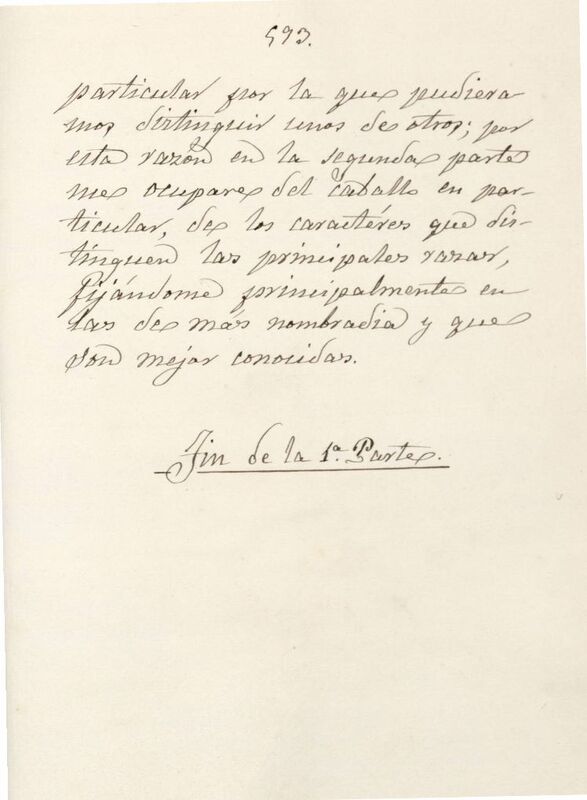 593.
particular por la que pudiera
mos distinguir unos de otros; por
esta razón en la segunda parte
me ocupare del Caballo en par-
ticular, de los caractéres que dis-
tinguen las principales razas,
fijándome principalmente en
las de más nombradia y que
son mejor conocidas.
Fin de la 1ª. Parte.